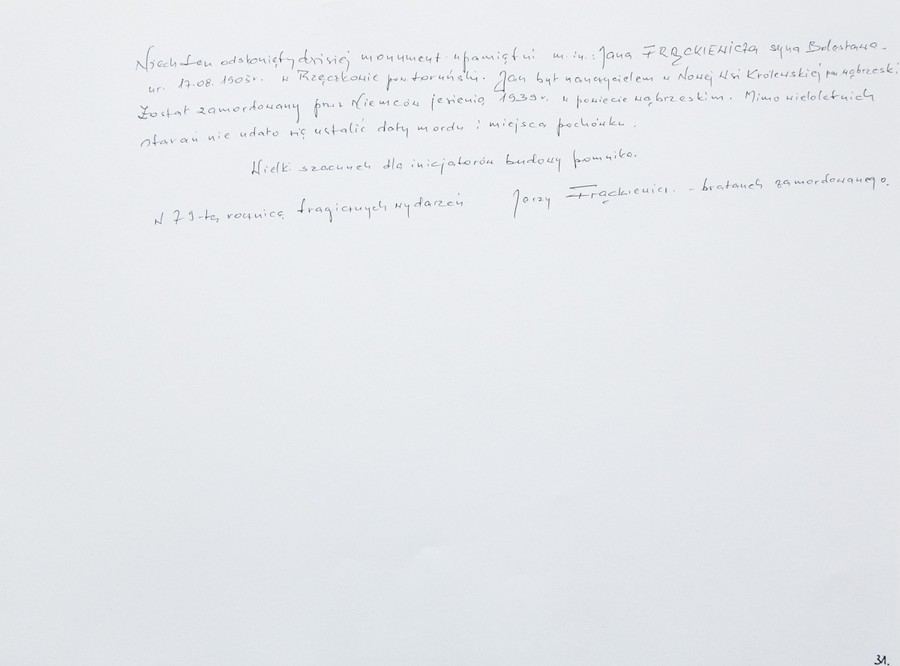 Niech ten odsłonięty dzisiej monument upamiętni m.in. Jana FRĄCKIEWICZA syna Bolesława.
ur. 17.08.1903r. w Rzęczkowie pow toruński. Jan był nauczycielem w Nowej Wsi Królewskiej pow wąbrzeski
Został zamordowany przez Niemców jesienią 1939r. w powiecie wąbrzeskim. Mimo wieloletnich
starań nie udało się ustalić daty mordu i miejsca pochówku.
Wielki szacunek dla inicjatorów budowy pomnika.
W 79-tą rocznicę tragicznych wydarzeń Jerzy Frąckiewicz - bratanek zamordowanego.
31.